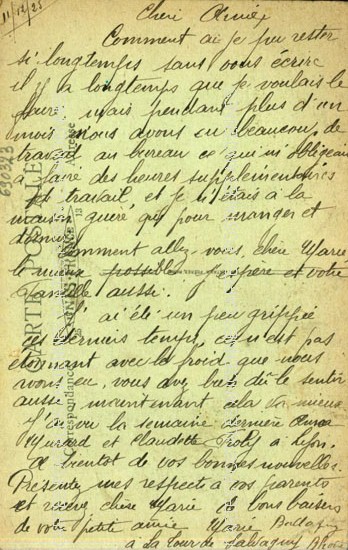 11/12/23
Cheri Amie
Comment ai je pu rester
si longtemps sans vous écrire
il y a longtemps que je voulais le
faire, mais pendant plus d'un
mois nous avons eu beaucoup de
travail au bureau ce qui m'obligeait
à faire des heures supplémentaires
de travail, et je n'étais à la
maison guère que pour manger et
dormir.
Comment allez-vous, chère Marie
le mieux possible j'espère et votre
Famille aussi.
J'ai été un peu grippée
ces derniers temps, ce n'est pas
étonnant avec le froid que nous
avons eu, vous avez bien dû le sentir
aussi maintenant cela va mieux
J'ai vu la semaine dernière
et Claudette à Lyon.
A bientot de vos bonnes nouvelles.
Présentez mes respects a vos parents
et recevez chère Marie de bons baisers
de votre petite amie Marie
à La Tour de Salvagny Rhône
CARTE POSTALE
Correspondance
Adresse